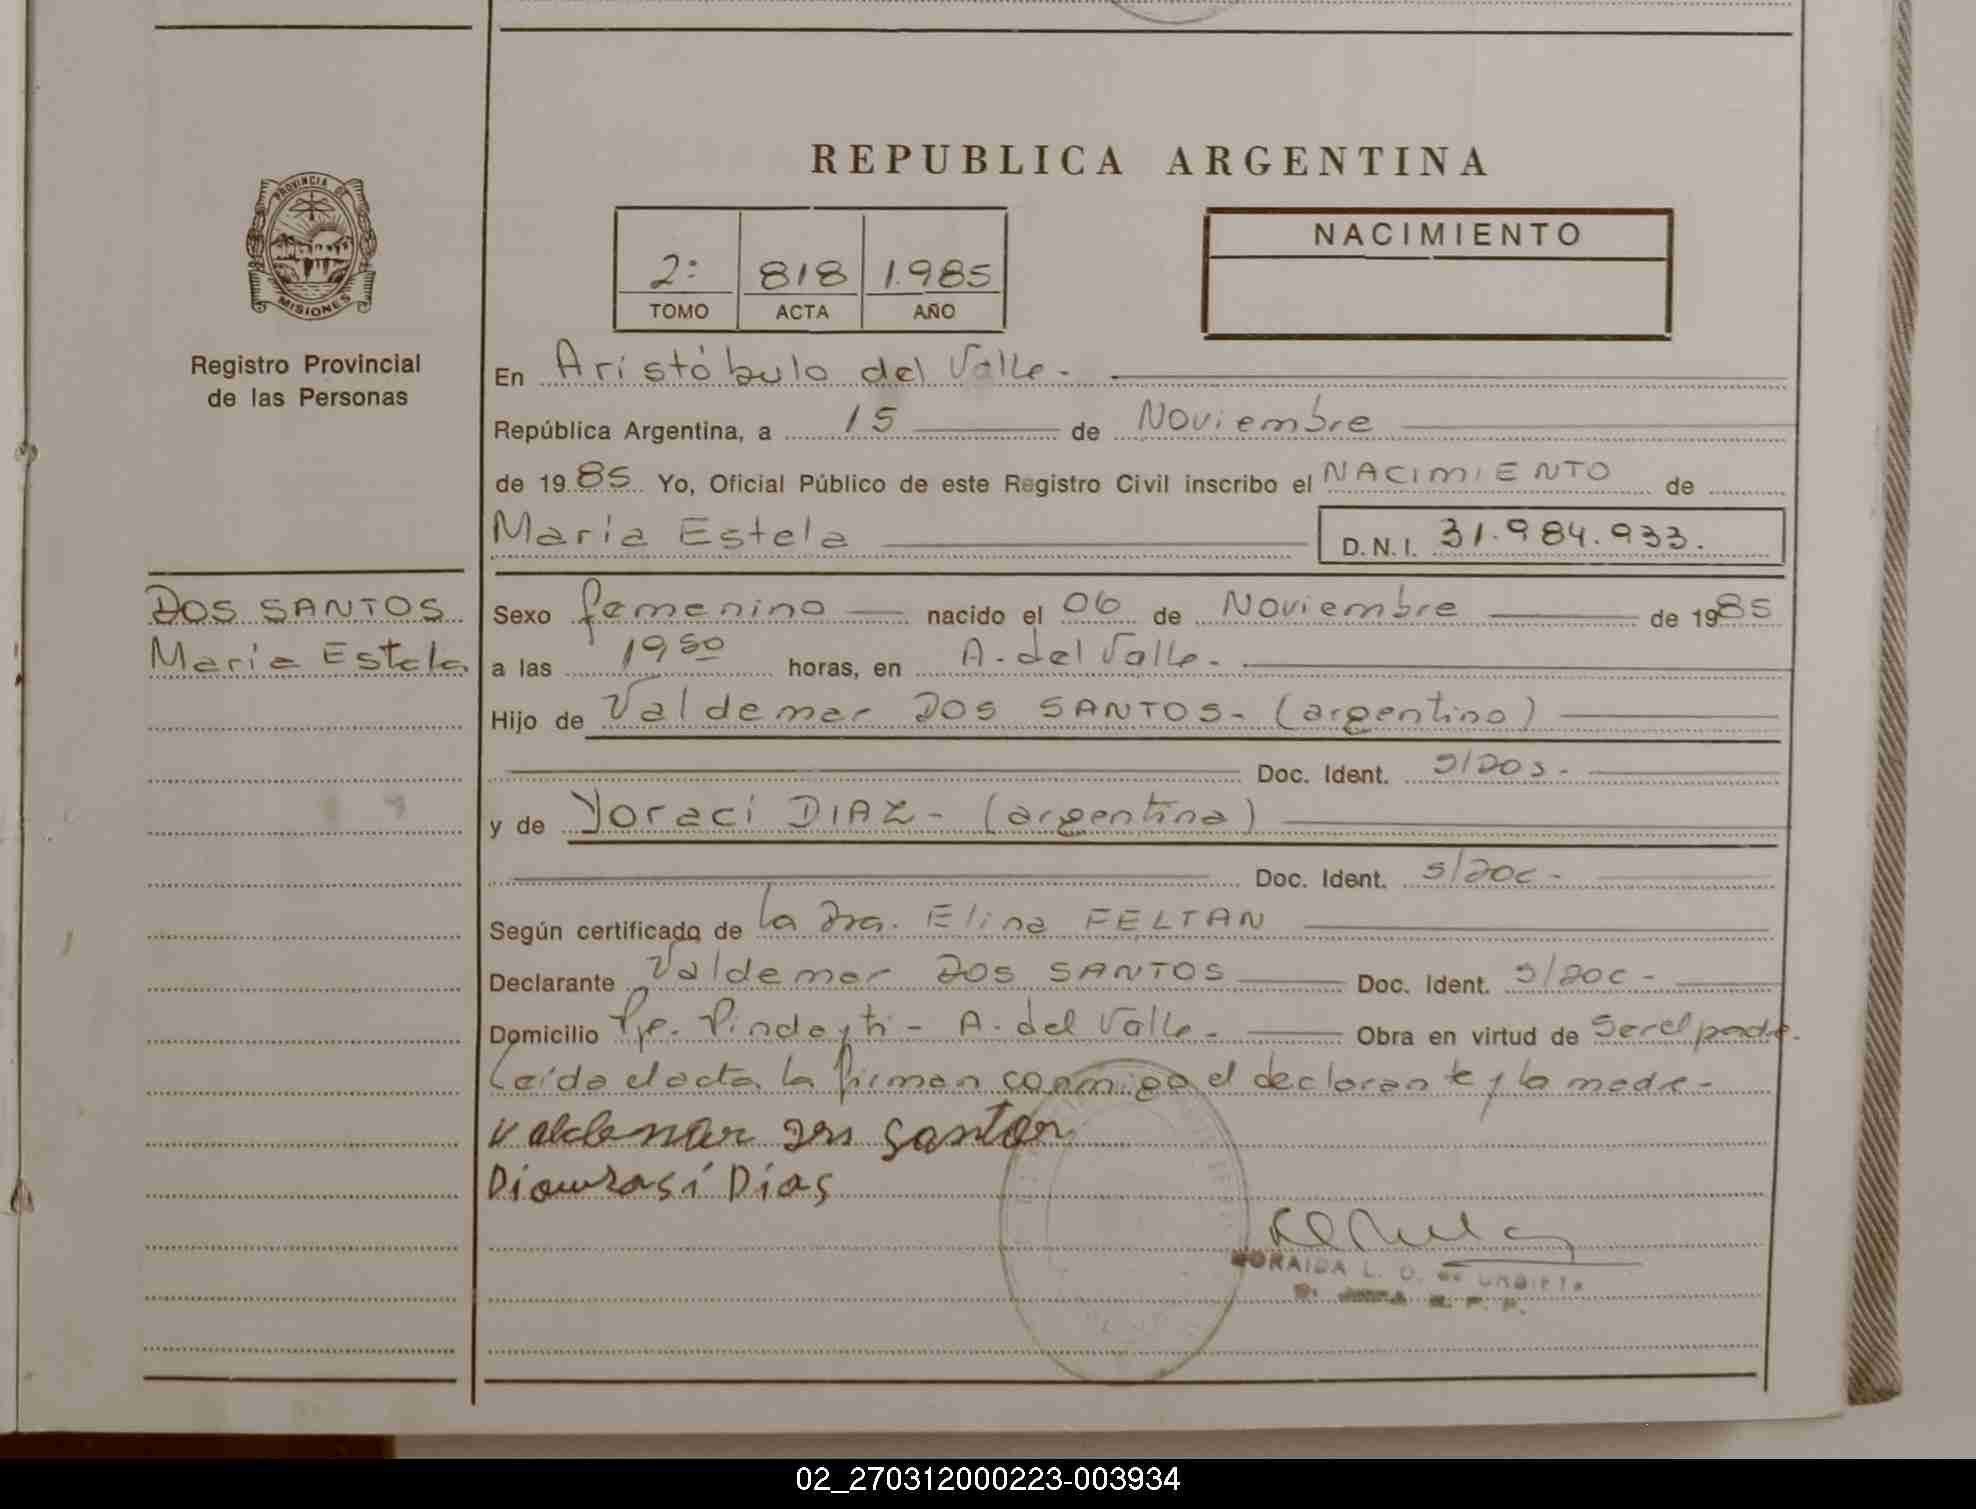 REPUBLICA ARGENTINA
PROVINCIA DE
MISIONES
Registro Provincial
de las Personas
2: 818 1.985
TOMO ACTA AÑO
NACIMIENTO
En Aristóbulo del Valle.-
República Argentina, a 15 de Noviembre
de 1985 Yo, Oficial Público de este Registro Civil inscribo el NACIMIENTO de
María Estela D.N.I. 31.984.933.
DOS SANTOS
María Estela
Sexo femenino nacido el 06 de Noviembre de 1985
a las 19 50 horas, en A. del Valle.-
Hijo de Valdemar DOS SANTOS- (argentino)
Doc. Ident. S/Dos-
y de Doraci DIAZ- (argentina)
Doc. Ident. S/doc-
Según certificado de la Dra. Elina FELTAN
Declarante Valdemar DOS SANTOS Doc. Ident. S/doc-
Domicilio Pje. Pindayti- A. del Valle- Obra en virtud de ser el padre.
Leída el acta la firman conmigo el declarante y la madre-
Valdemar dos santos
Días
MORAIDA L. D. de URBIETA
R. P. P.
02_270312000223-003934